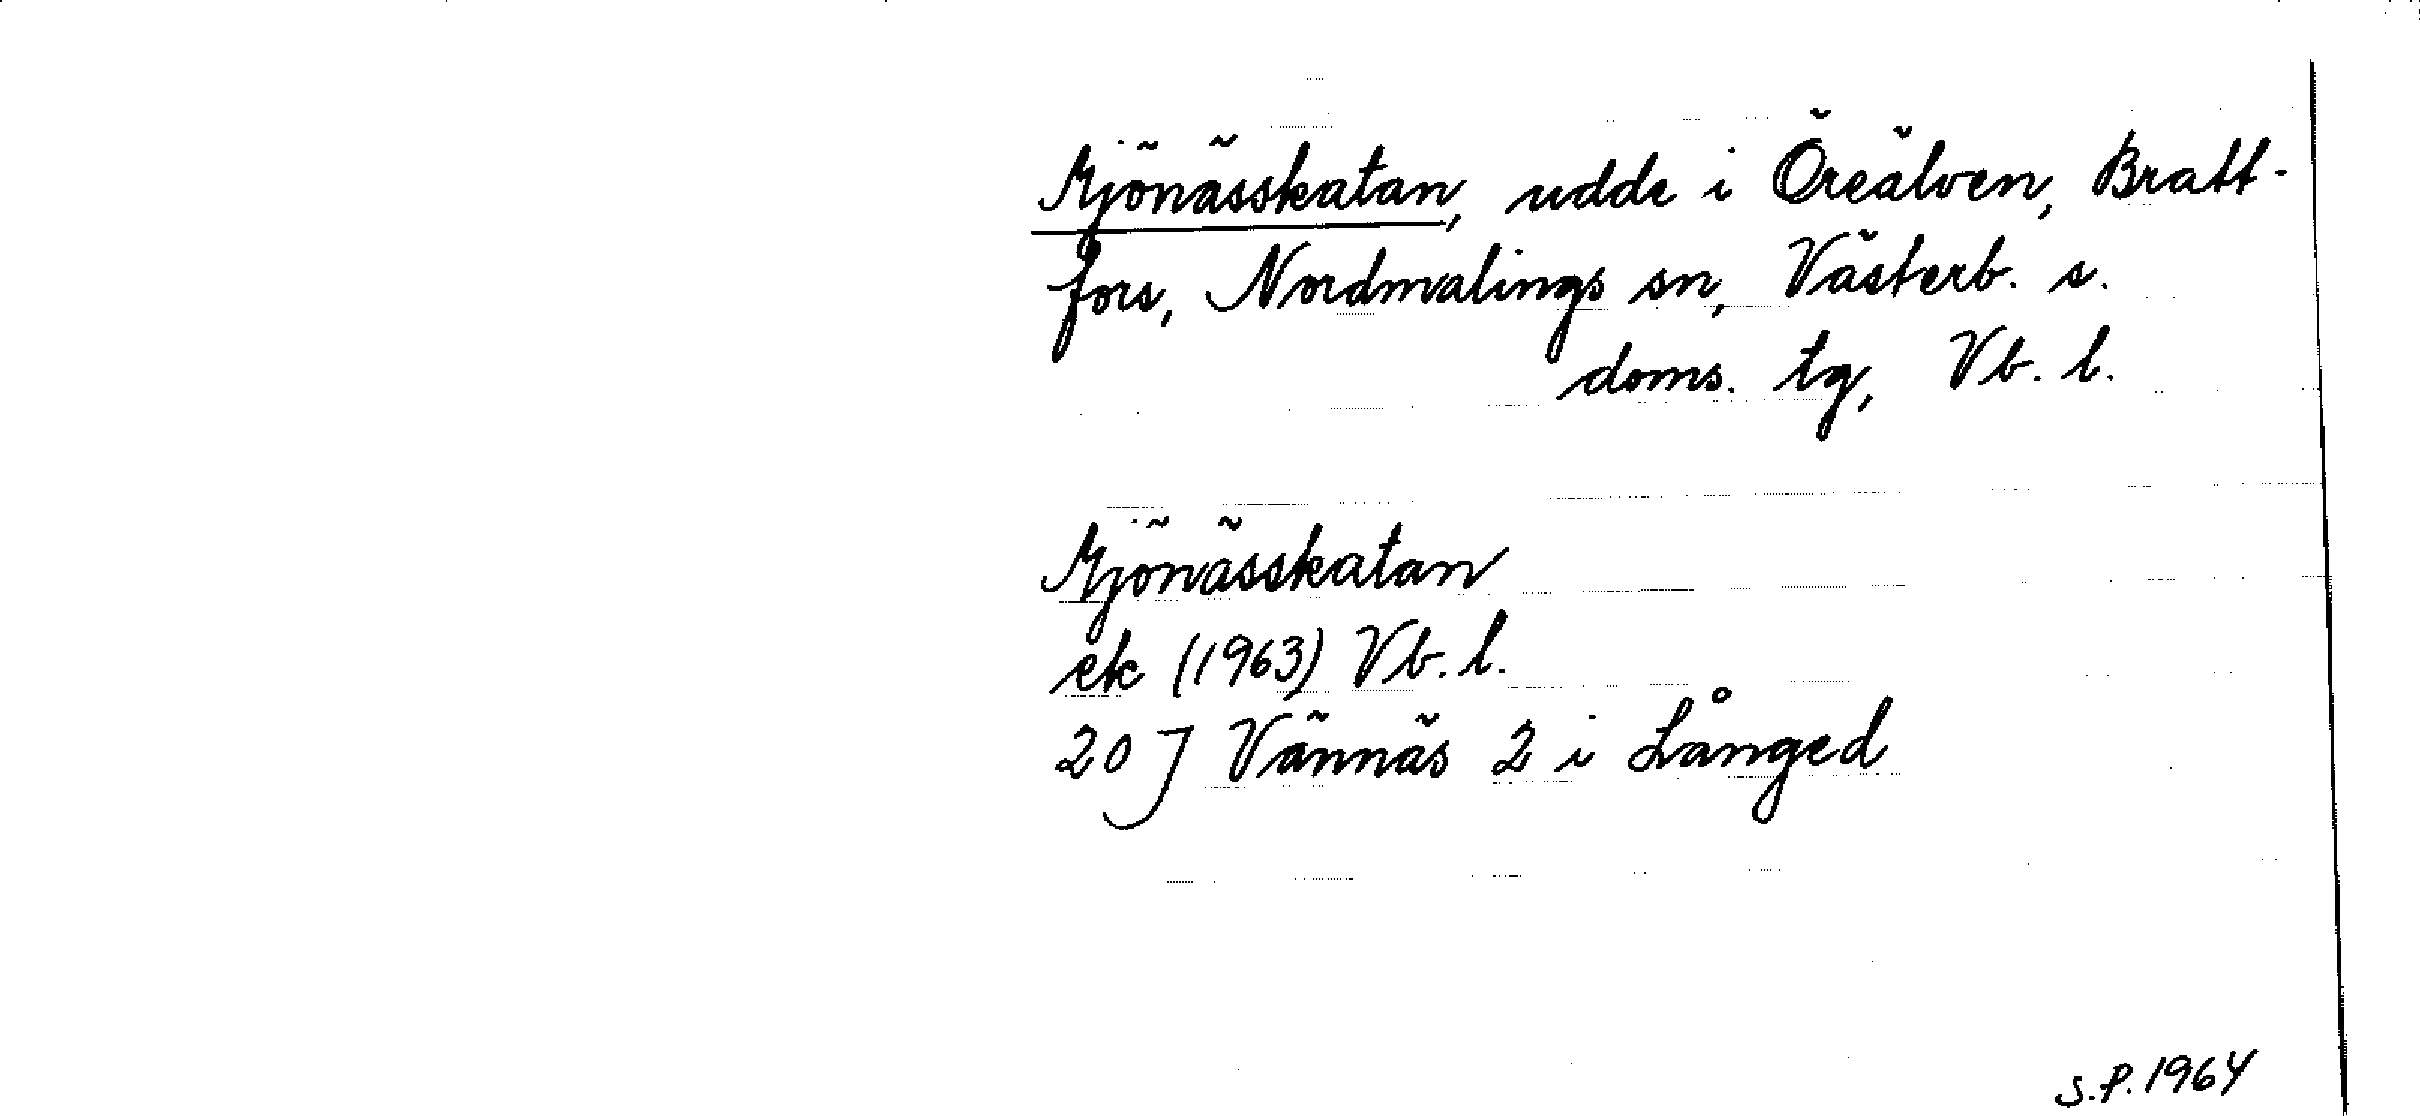 Mjönässkatan, udde i Öreälven, Bratt-
fors, Nordmalings sn, Västerb. s.
doms. tg, Vb. l.
Mjönässkatan
ek (1963) Vb. l.
20 J Vännäs 2 i Långed
S.P. 1964